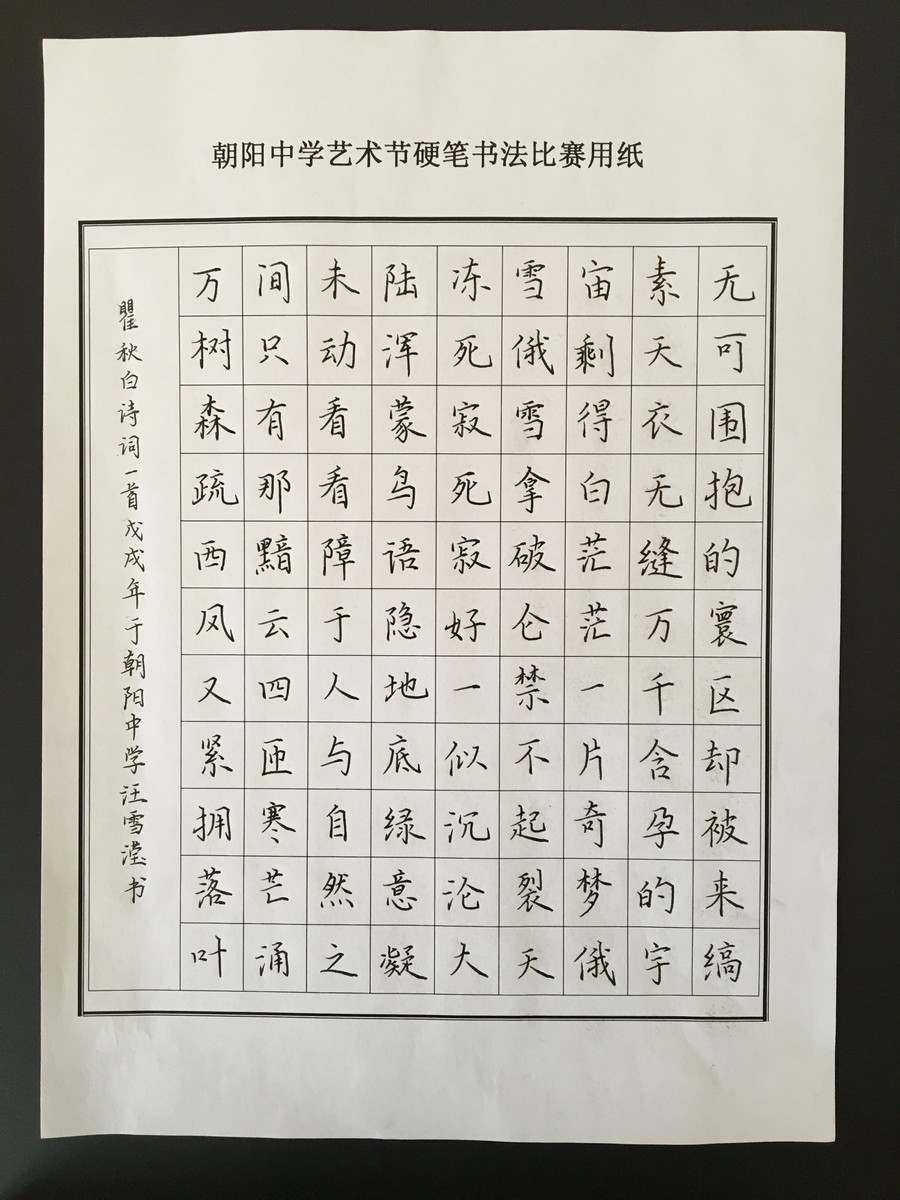 朝阳中学艺术节硬笔书法比赛用纸
无可围抱的寰区却被来缟
素天衣无缝万千含孕的宇
宙剩得白茫茫一片奇梦俄
雪俄雪拿破仑禁不起裂天
冻死寂死寂好一似沉沦大
陆浑蒙鸟语隐地底绿意凝
未动看看障于人与自然之
间只有那黯云四匝寒芒涌
万树森疏西风又紧拥落叶
瞿秋白诗词一首戊戌年于朝阳中学汪雪滢书